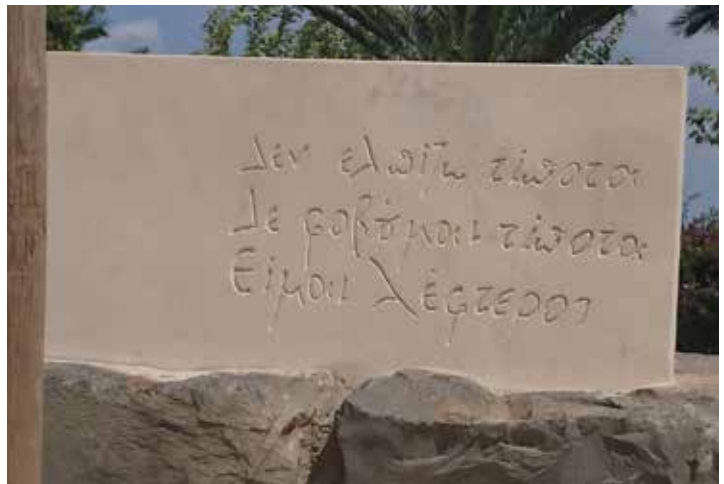 Δέν ελπίζω τίποτα
Δε φοβύμαι τίποτα
Είμαι λέφτερος